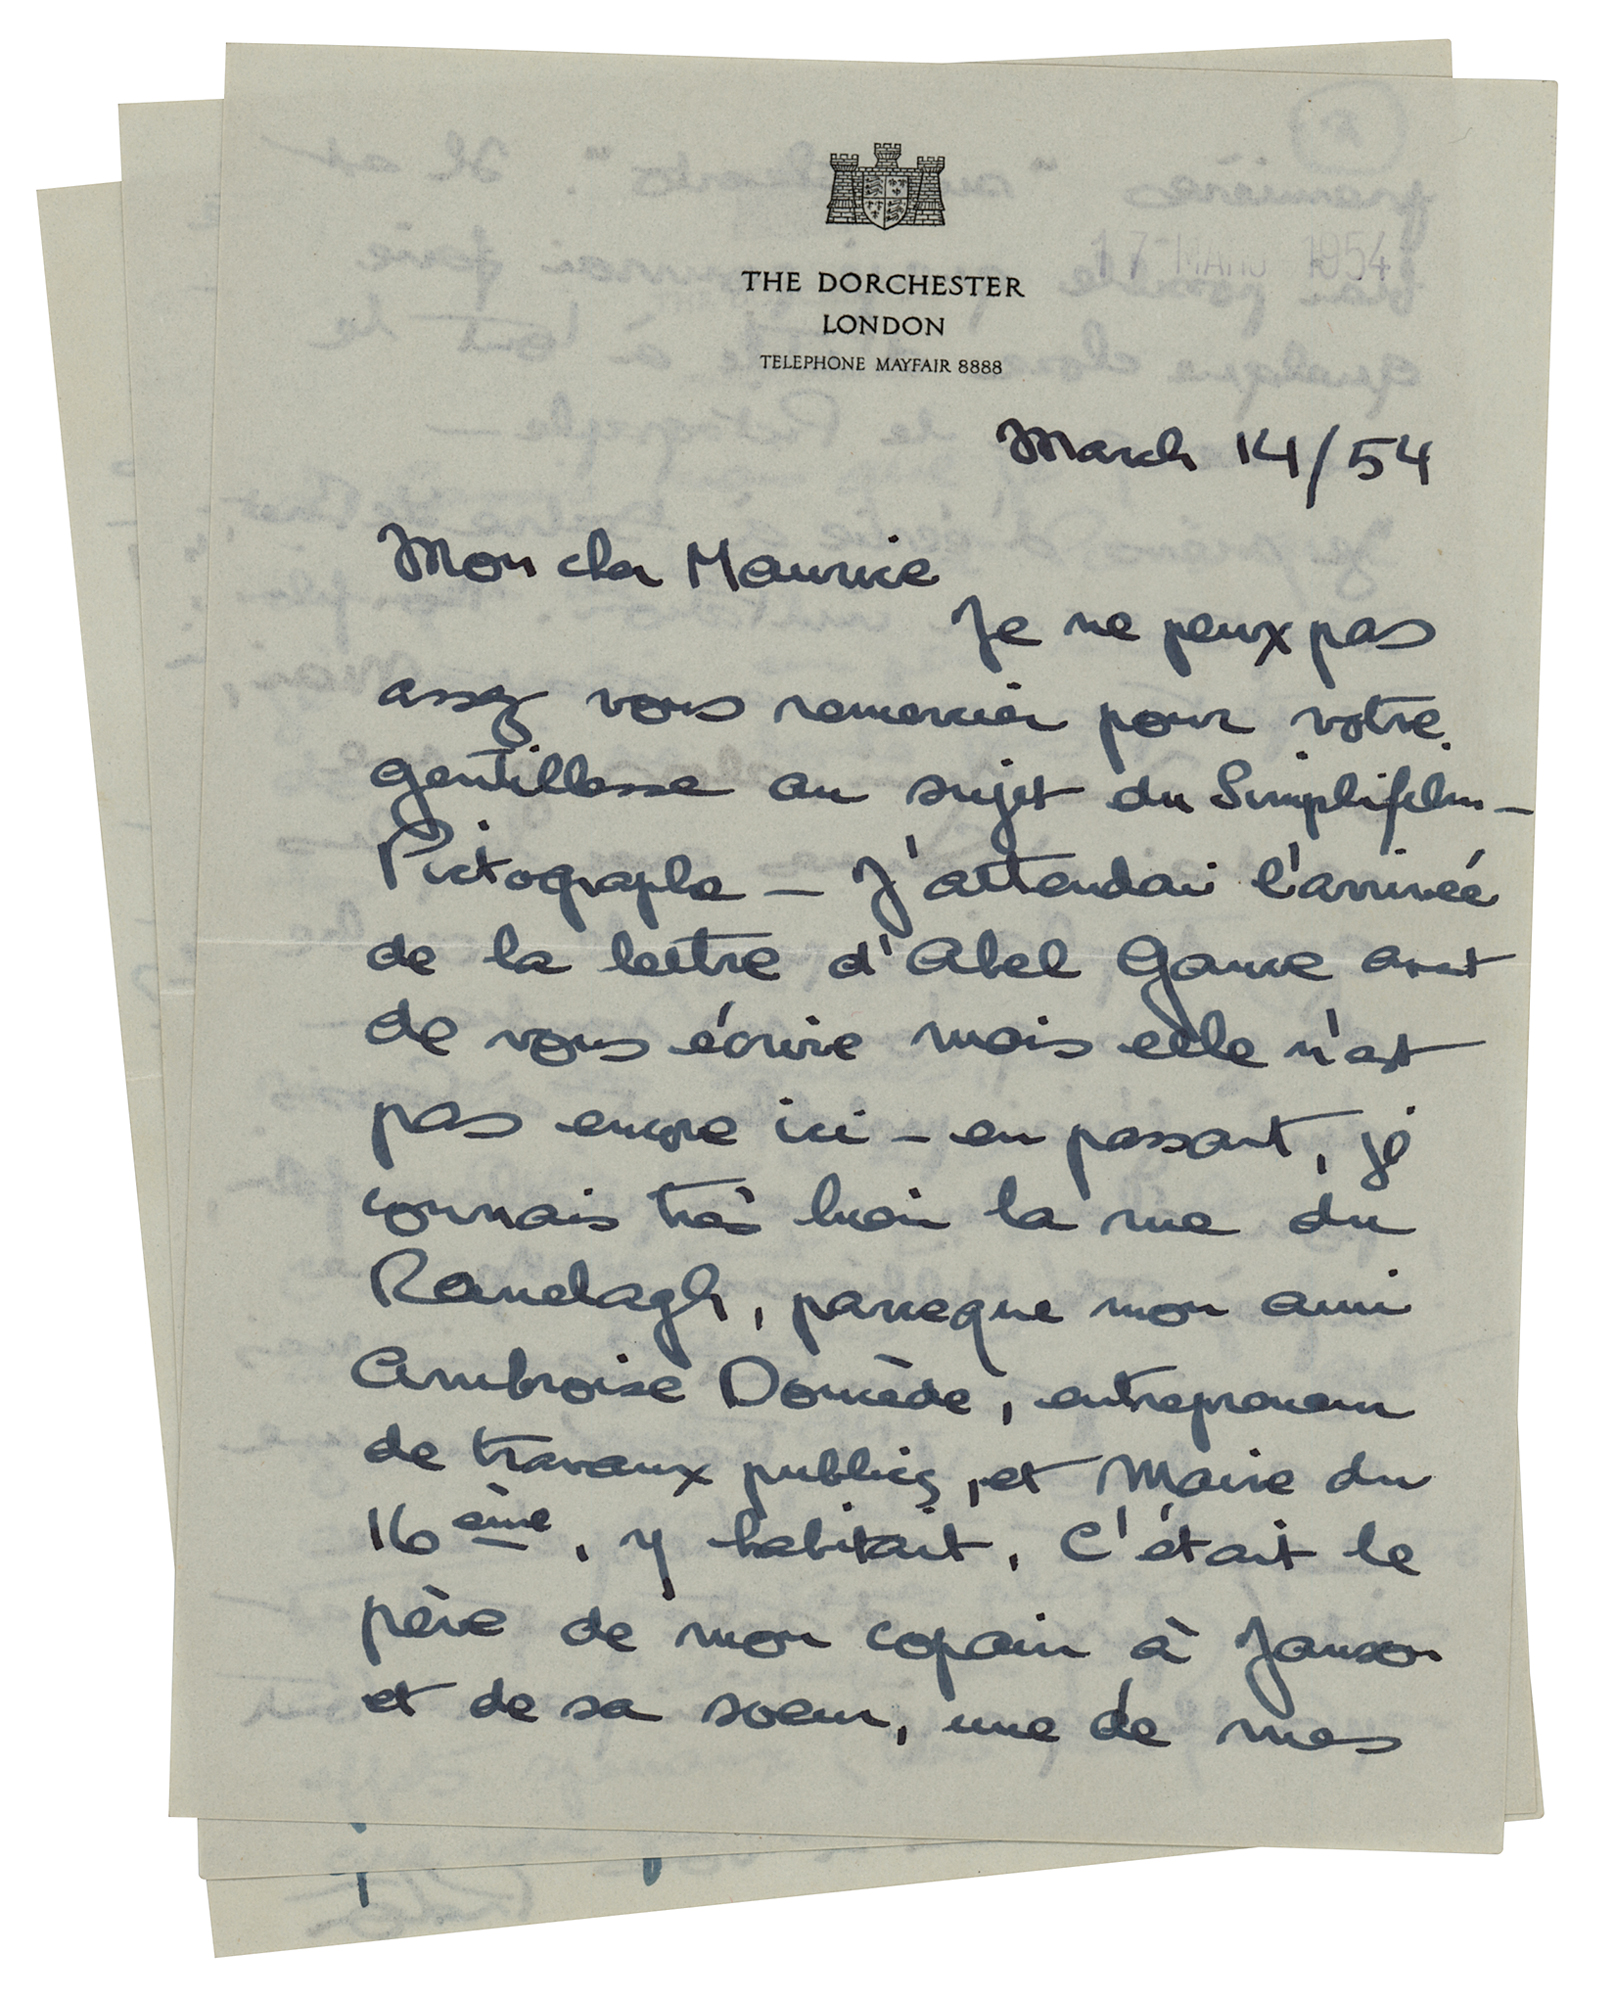 THE DORCHESTER
LONDON
TELEPHONE MAYFAIR 8888
17 MARS 1954
March 14/54
Mon cher Maurice
Je ne peux pas
assez vous remercier pour votre
gentillesse au sujet du Simplifilm-
Pictographe – J'attendai l'arrivée
de la lettre d'Abel Gance avant
de vous écrire mais elle n'est
pas encore ici – en passant, je
connais très bien la rue du
Ranelagh, parceque mon ami
Ambroise Domède, entrepreneur
de travaux publics, et Maire du
16 ème, y habitait. C'était le
père de mon copain à Janson
et de sa soeur, une de mes